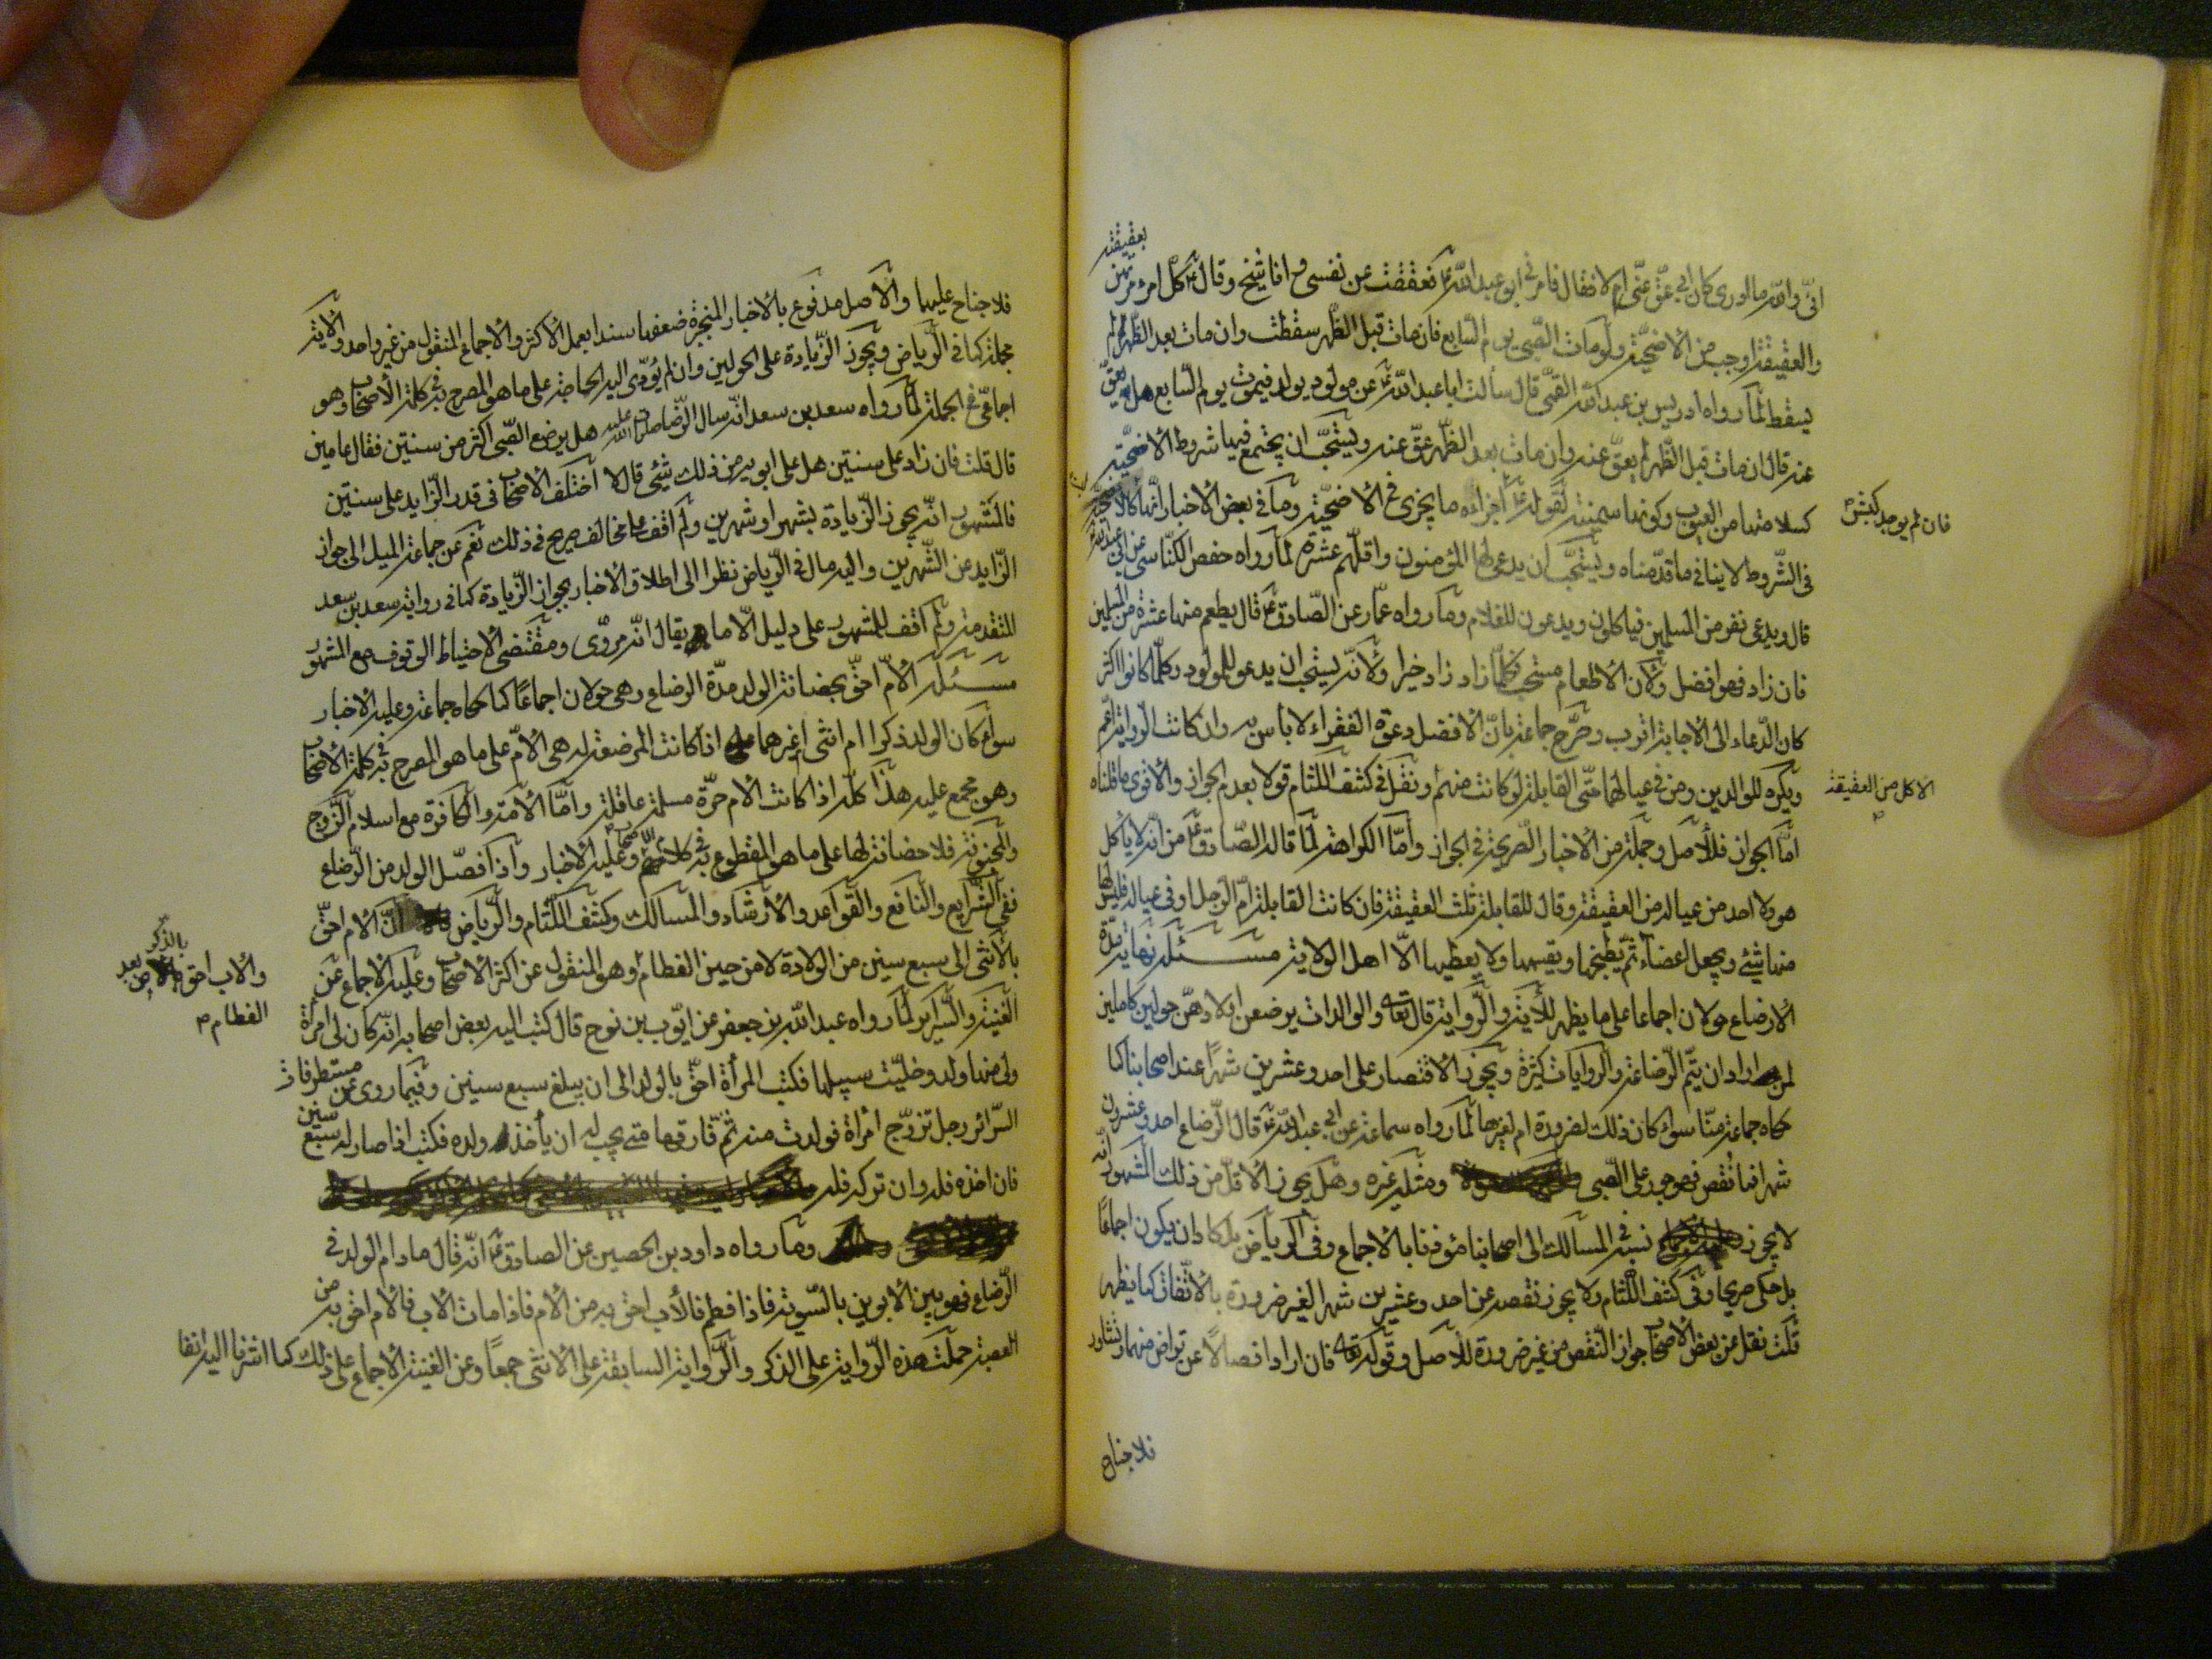 انّي والله ما ادري كان ابي عقّ عنّي ام لا فقال فامرني ابو عبد الله ع فعققت عن نفسي و انا شيخ وقال ع كل امرء مرتهن
بعقيقته
والعقيقة اوجب من الاضحيّة ولو مات الصّبي يوم السّابع فان مات قبل الظّهر سقطت وان مات بعد الظّهر لم
يسقط لما رواه ادريس بن عبد الله القمّي قال سألت ابا عبد الله ع عن مولود يولد فيموت يوم السّابع هل يعقّ
عنه قال ان مات قبل الظّهر لم يعقّ عنه وان مات بعد الظّهر عقّ عنه ويستحبّ ان يجتمع فيها شروط الاضحيّة
فان لم يوجد كبش
كسلامتها من العيوب وكونها سمينة لقوله ع اجزاءه ما يجزي في الاضحيّة وما في بعض الاخبار انّها كالاضحيّة
في الشّروط لا ينافي ما قدّمناه ويستحبّ ان يدعى لها المؤمنون واقلّهم عشرة لما رواه حفص الكنّاسي عن ابي عبد الله ع
قال ويدعى نفر من المسلمين فياكلون ويدعون للغلام وما رواه عمّار عن الصّادق ع قال يطعم منها عشرة من المسلمين
فان زاد فهو افضل ولانّ الاطعام مستحب فكلّما زاد زاد خيرا ولانّه يستحب ان يدعو للمولود وكلّما كانوا اكثر
كان الدّعاء الى الاجابة اقرب وصرّح جماعة بانّ الافضل دعوة الفقراء لا باس به وان كانت الرّواية اعم
ويكره للوالدين ومن في عيالهما حتّى القابلة لو كانت منهم ونقل في كشف اللثام قولا بعدم الجواز والاقوى ما قلناه
الاكل من العقيقة
امّا الجواز فللاصل وجملة من الاخبار الصّريحة في الجواز وامّا الكراهة لما قاله الصّادق ع من انّه لا ياكل
هو ولا احد من عياله من العقيقة وقال للقابلة ثلث العقيقة فان كانت القابلة امّ الرّجل او في عياله فليس لها
منها شيئ ويجعل اعضاء ثمّ يطبخها ويقسمها ولا يعطيها الّا اهل الولاية مسئله نهاية مدّة
الارضاع حولان اجماعا على ما يظهر للاية والرّواية قال تعالى والوالدات يرضعن اولادهنّ حولين كاملين
لمن اراد ان يتمّ الرّضاعة والروايات كثيرة ويجوز الاقتصار على احد وعشرين شهرا عند اصحابنا كما
حكاه جماعة منّا سواء كان ذلك لضرورة ام لغيرها لما رواه سماعة عن ابي عبد الله ع قال الرّضاع احد وعشرون
شهرا فما نقص فهو جور على الصّبي ومثله غيره وهل يجوز الاقلّ من ذلك المشهور انّه
لا يجوز نسبه في المسالك الى اصحابنا مؤذنا بالاجماع وفي الرّياض بل كاد ان يكون اجماعًا
بل حكى صريحا وفي كشف اللثام ولا يجوز نقصه عن احد وعشرين شهرا لغير ضرورة بالاتّفاق كما يظهر
قلت نقل عن بعض الاصحاب جواز النّقص من غير ضرورة للاصل وقوله تعالى فان ارادا فصالاً عن تراض منهما وتشاور
فلا جناح
فلا جناح عليهما والاصل مدفوع بالاخبار المنجبرة ضعفها سندا بعمل الاكثر والاجماع المنقول من غير واحد والاية
مجملة كما في الرّياض ويجوز الزّيادة على الحولين وان لم يؤدّى اليه الحاجة على ما هو المصرح به في كلمة الاصحاب وهو
اجماعيّ في الجملة لما رواه سعد بن سعد انّه سال الرّضا صلوات الله عليه هل يرضع الصّبي اكثر من سنتين فقال عامين
قال قلت فان زاد على سنتين هل على ابويه من ذلك شيئ قال لا اختلف الاصحاب في قدر الزّايد على سنتين
فالمشهور انّه يجوز الزّيادة بشهر او شهرين ولم اقف على مخالف صريح في ذلك نعم عن جماعة الميل الى جواز
الزّايد عن الشّهرين واليه مال في الرّياض نظرا الى اطلاق الاخبار بجواز الزّيادة كما في رواية سعد بن سعد
المتقدمة ولم اقف للمشهور على دليل الّا ما يقال انّه مرويّ ومقتضى الاحتياط الوقوف مع المشهور
مسئله الامّ احقّ بحضانة الولد مدّة الرضاع وهي حولان اجماعًا كما حكاه جماعة وعليه الاخبار
سواء كان الولد ذكرا ام انثى ام غيرهما اذا كانت المرضعة له هي الامّ على ما هو المصرح به في كلمة الاصحاب
وهو مجمع عليه هذا كلّه اذا كانت الام حرّة مسلمة عاقلة وامّا الامة والكافرة مع اسلام الزّوج
والمجنونة فلا حضانة لها على ما هو المقطوع به في كلام الاصحاب وعليه الاخبار واذا فصّل الولد من الرّضاع
ففي الشّرايع والنّافع والقواعد والارشاد والمسالك وكشف اللّثام والرّياض انّ الام احقّ
بالانثى الى سبع سنين من الولادة لا من حين الفطام وهو المنقول عن اكثر الاصحاب وعليه الاجماع عن
والاب احق بالذكر من بعد
الفطام
الغنية والسّراير لما رواه عبد الله بن جعفر عن ايّوب بن نوح قال كتب اليه بعض اصحابه انّه كان لي امرأة
ولي منها ولد وخلّيت سبيلها فكتب المرأة احقّ بالولد الى ان يبلغ سبع سينين وفيما روى عن مستطرفات
السّرائر رجل تزوّج امرأة فولدت منه ثمّ فارقها متى يجب له ان يأخذ ولده فكتب اذا صار له سبع سنين
فان اخذه فله وان تركه فله
وما رواه داود بن الحصين عن الصادق ع انّه قال ما دام الولد في
الرّضاع فهو بين الابوين بالسّوية فاذا فطم فالأب احق به من الام فاذا مات الاب فالام احق به من
العصبة حملت هذه الرّواية على الذكر والرّواية السابقة على الانثى جمعاً وعن الغنية الاجماع على ذلك كما اشرنا اليه انفا